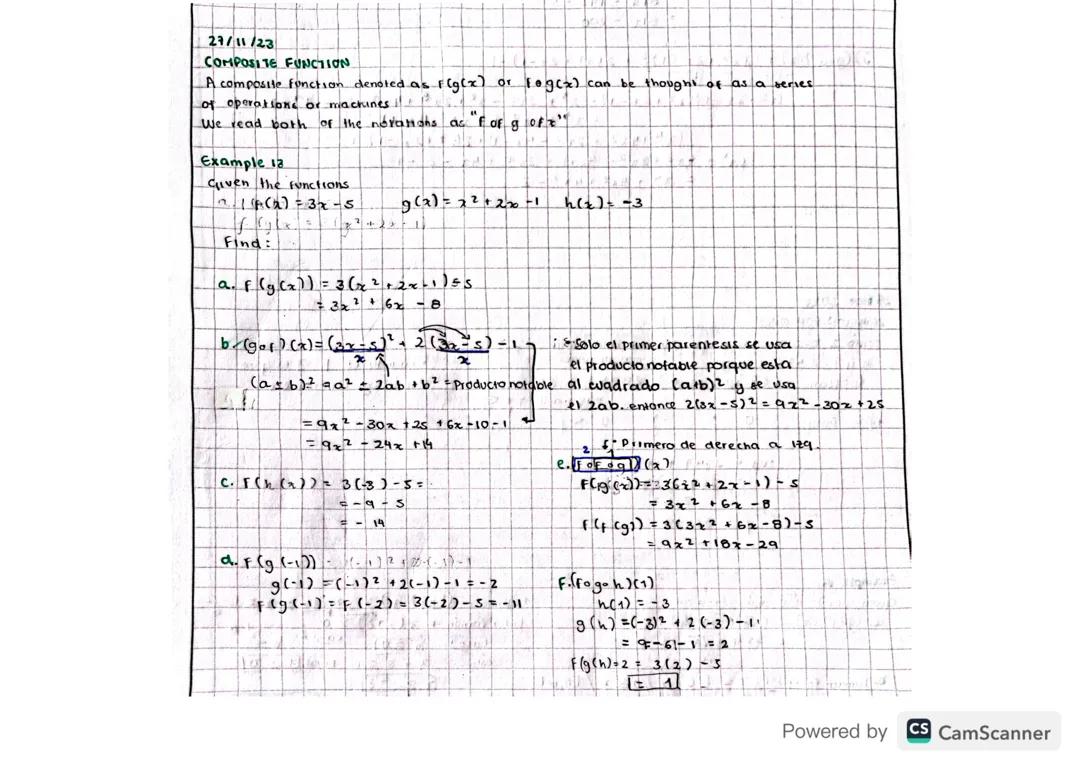 27/11/23
COMPOSITE FUNCTION
A composite function denoted as F(g(x) or fog(x) can be thought of as a series
of operations or machines
We read both of the notations as "F of g of x"
Example 12
Given the functions
f(x) = 3x - 5 g(x) = x² + 2x - 1 h(x) = -3
Find:
a. F(g(x)) = 3(x² + 2x - 1) - 5
= 3x² + 6x - 8
b. (gof)(x) = (3x - 5)² + 2(3x - 5) - 1
x x
(a ± b)² = a² ± 2ab + b² = Producto notable
= 9x² - 30x + 25 + 6x - 10 - 1
= 9x² - 24x + 14
Solo el primer parentesis se usa
el producto notable porque esta
al cuadrado (a+b)² y se usa
el 2ab. entonce 2(3x - 5)² = 9x² - 30x + 25
c. F(h(x)) = 3(-3) - 5 =
= -9 - 5
= -14
d. F(g(-1))
g(-1) = (-1)² + 2(-1) - 1 = -2
F(g(-1) = F(-2) = 3(-2) - 5 = -11
Primero de derecha a izq.
2 1
e. (FoFog)(x)
F(g(x)) = 3(x² + 2x - 1) - 5
= 3x² + 6x - 8
f(f(g)) = 3(3x² + 6x - 8) - 5
= 9x² + 18x - 29
F. (Fogoh)(1)
h(1) = -3
g(h) = (-3)² + 2(-3) - 1
= 9 - 6 - 1 = 2
F(g(h) = 2 = 3(2) - 5
= 1
Powered by CS CamScanner